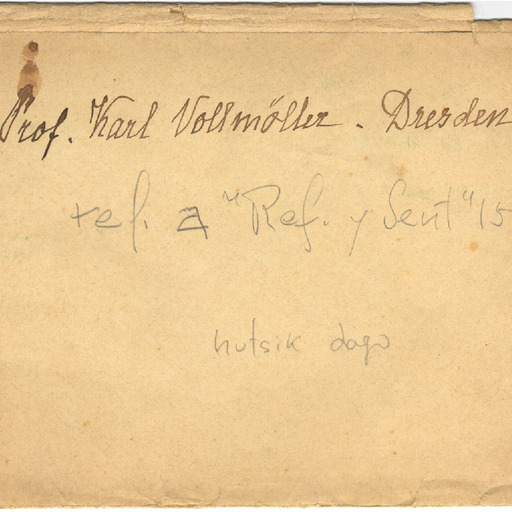 Prof. Karl Vollmöller - Dresden
ref. a "Ref. y Sent" 15
hutsik dago